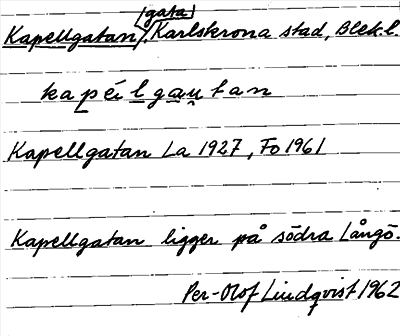 gata
Kapellgatan, Karlskrona stad, Blek.l.
kapélgautan
Kapellgatan La 1927, Fo 1961
Kapellgatan ligger på södra Långö.
Per-Olof Lindqvist 1962